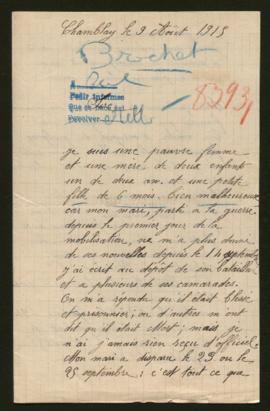 Chamblay le 9 Août 1915
Brochet
A
Pedir informes
Que se
Devolver
8293
je suis une pauvre femme
et une mère de deux enfants
un de deux ans et une petite
fille de 6 mois. bien malheureuse
car mon mari, parti à la guerre
depuis le premier jour de la
mobilisation, ne m'a plus donné
de ses nouvelles depuis le 14 septembre
j'y ai écrit au depot de son bataillon
et a plusieurs de ses camarades.
On m'a répondu qu'il était blessé
et prisonnier; ou d'autres m'ont
dit qu'il était Mort; mais je
n'ai jamais rien reçu d'officiel.
Mon mari a disparu le 23 ou le
25 septembre: c'est tout ce que